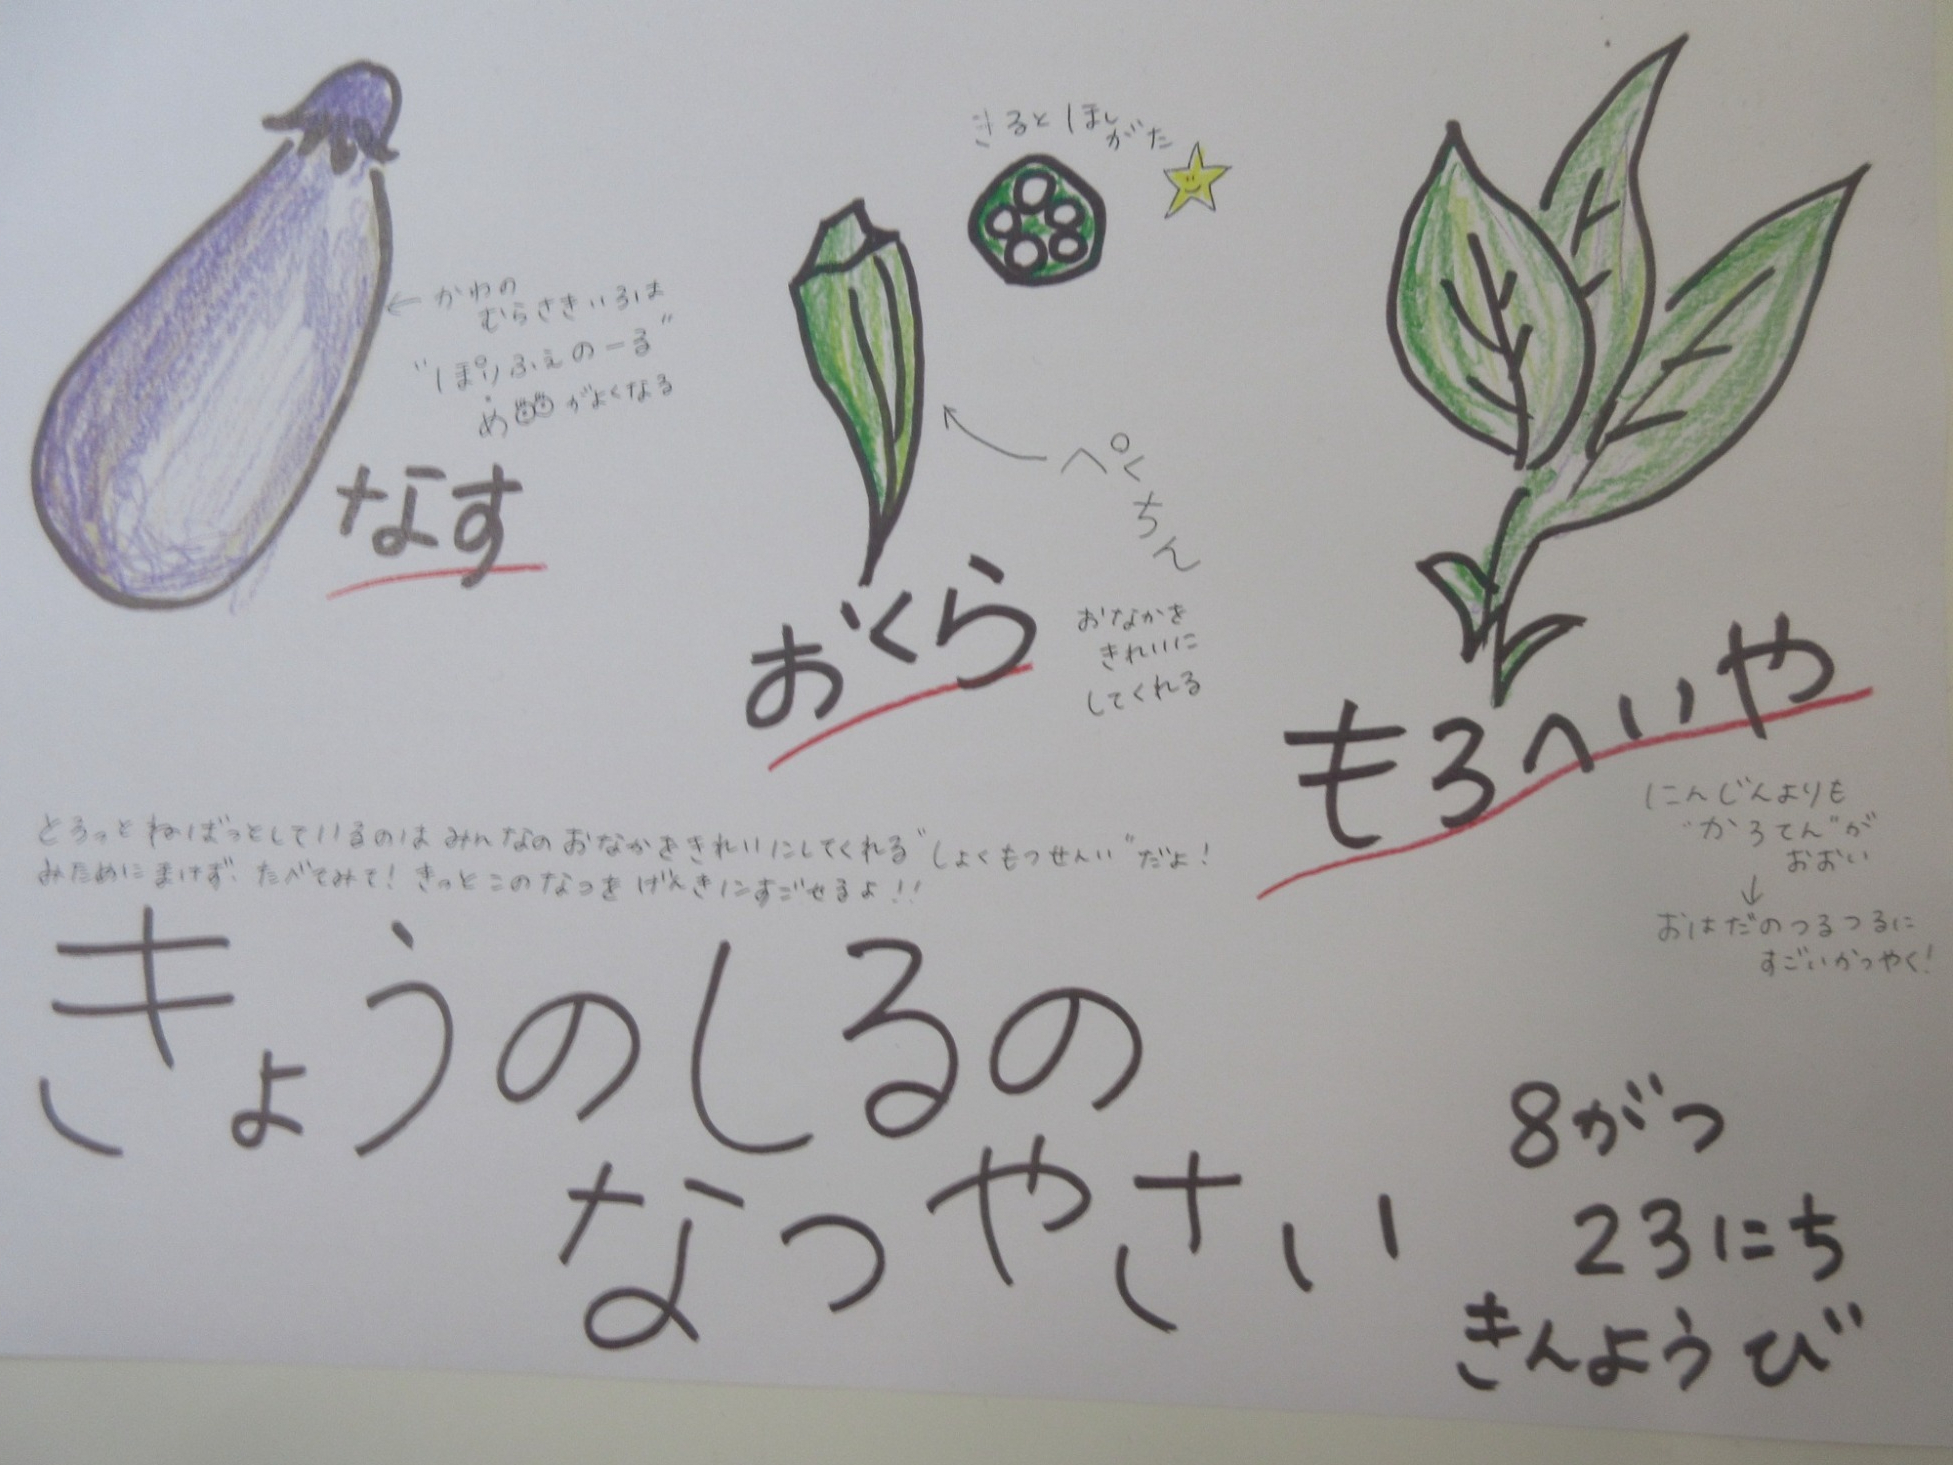 きるとほしがた
←かわの
むらさきいろは
"ぽりふぇのーる"
めがよくなる
なす
ぺくちん
おくら
おなかを
きれいに
してくれる
もろへいや
にんじんよりも
"かろてん"が
おおい
↓
おはだのつるつるに
すごいかつやく!
とろっとねばっとしているのはみんなのおなかをきれいにしてくれる"しょくもつせんい"だよ!
みためにまけず、たべてみて!きっとこのなつをげんきにすごせるよ!!
きょうのしるの
なつやさい
8がつ
23にち
きんようび